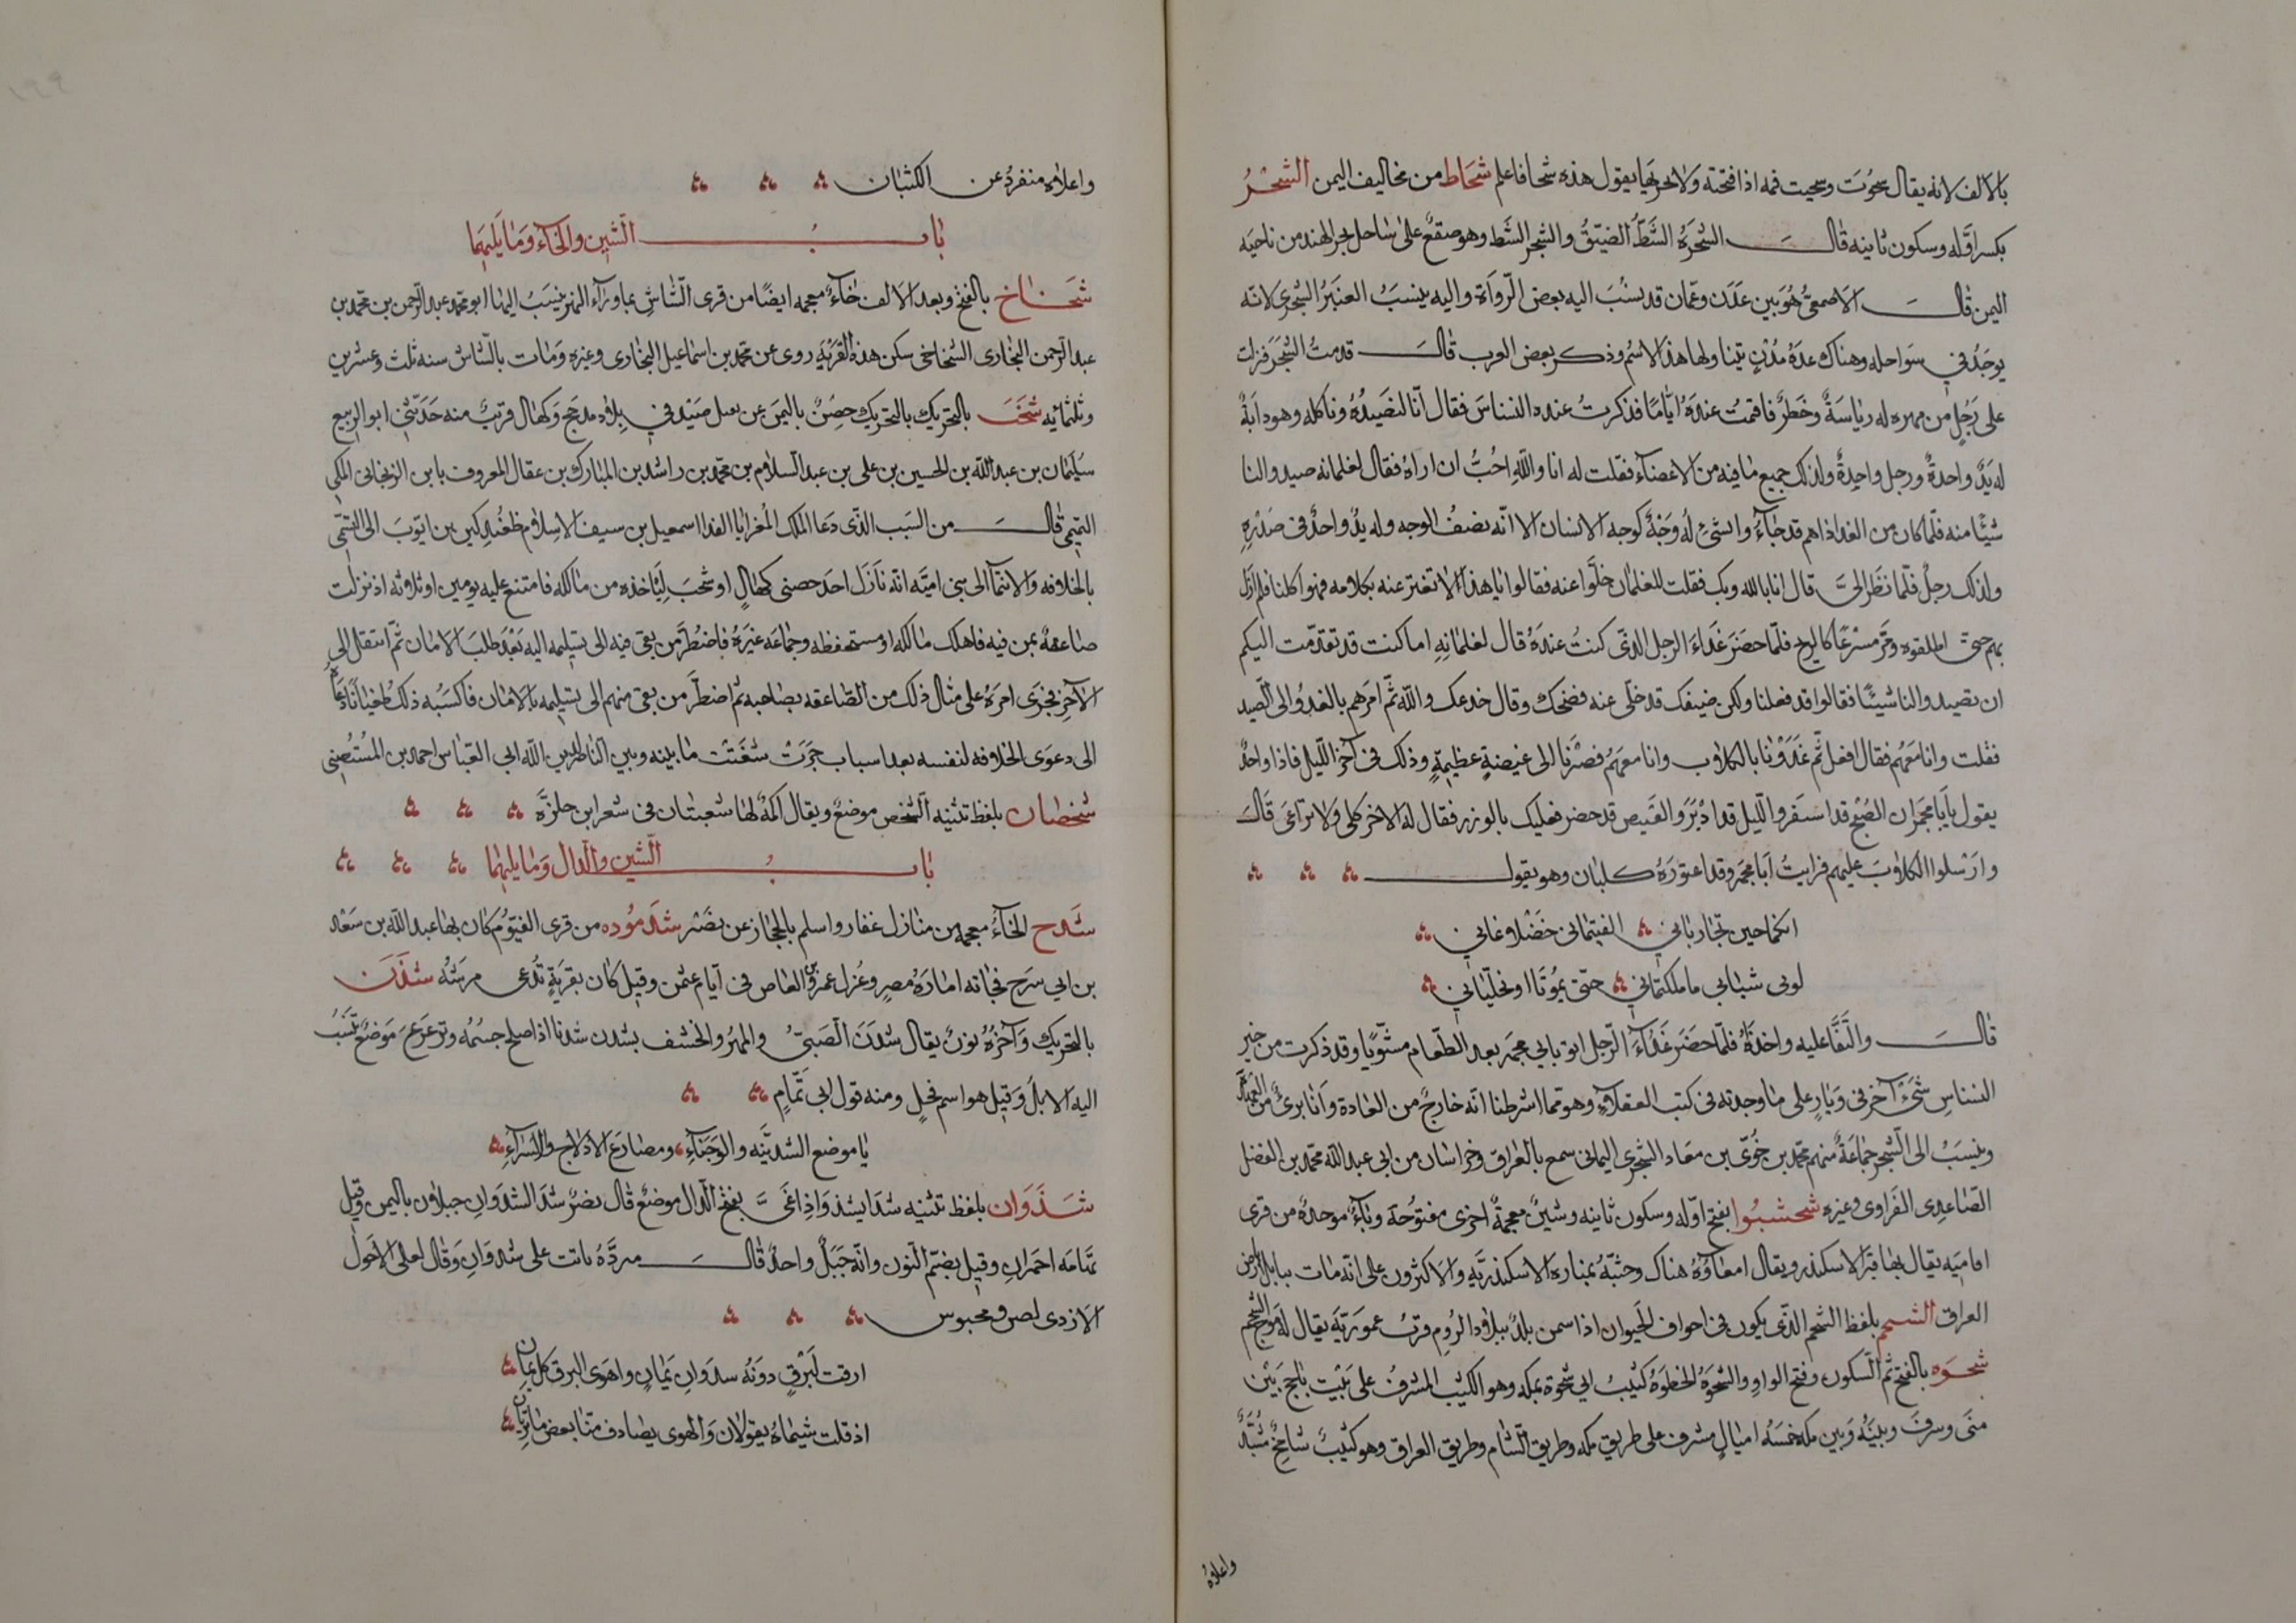 بالالف لانه يقال سحوت وسحيت فمه اذا فتحته ولا يقول هذه شحافاعلم شحاط من مخاليف اليمن الشحر
بكسر اوله وسكون ثانيه قال الشحرة الشط الضيق والشحر الشط وهو صقع على ساحل بحر الهند من ناحيه
اليمن قال الاصمعي هو بين عدن وعمان قد نسب اليه بعض الرواة واليه ينسب العنبر الشحري لانه
يوجد في سواحله وهناك عدة مدن يتناولها هذا الاسم وذكر بعض العرب قال قدمت الشحر فنزلت
على رجل من مهره له رياسة وخطر فاقمت عنده اياما فذكرت عنده النسناس فقال انا لنصيده وناكله وهو دابة
له يد واحدة ورجل واحدة وكذلك جميع ما فيه من الاعضاء فقلت له انا والله احب ان اراه فقال لغلمانه صيدوا لنا
شيئا منه فلما كان من الغد اذا هم قد جاؤا بشئ له وجه كوجه الانسان الا انه نصف الوجه وله يد واحد في صدره
وكذلك رجل فلما نظر الي قال انا بالله وبك فقلت للغلمان خلوا عنه فقالوا يا هذا لا تغتر عنه بكلامه فهو اكلنا فلم ازل
بهم حتى اطلقوه ومر مسرعا كالريح فلما حضر غداء الرجل الذي كنت عنده قال لغلمانه اما كنت قد تقدمت اليكم
ان تصيدوا لنا شيئا فقالوا قد فعلنا ولكن ضيفك قد خلى عنه فضحك وقال خدعك والله ثم امرهم بالغدو الى الصيد
فقلت وانا معهم فقال افعل ثم غدونا بالكلاب وانا معهم فصرنا الى غيضة عظيمة وذلك في آخر الليل فاذا واحد
يقول يا ابا مجمر ان الصبح قد اسفر والليل قد ادبر والقنيص قد حضر فعليك بالوزر فقال له الاخر كلي ولا تراعي قال
وارسلوا الكلاب عليهم فرايت ابا مجمر وقد اعتوره كلبان وهو يقول
انكما حين تجارباني الفيتماني خضلا عناني
لو بي شبابي ما ملكتماني حتى يموتا او تخلياني
قال والتقا عليه واخذاه فلما حضر غداء الرجل اتوا بابي مجمر بعد الطعام مشويا وقد ذكرت من خبر
النسناس شئ آخر في وبار على ما وجدته في كتب العقلاء وهو مما اشرطنا انه خارج من العادة وانا برئ من العهدة
وينسب الى الشحر جماعة منهم محمد بن خوي بن معاد الشحري اليماني سمع بالعراق وخراسان من ابي عبد الله محمد بن الفضل
الصاعدي الفراوي وغيره شحشبوا بفتح اوله وسكون ثانيه وشين معجمة اخرى مفتوحة وباء موحدة من قرى
افاميه يقال بها قبر الاسكندر ويقال امعاؤه هناك وجثته بمنارة الاسكندرية والاكثرون على انه مات ببابل بارض
العراق الشحم بلفظ الشحم الذي يكون في اجواف الحيوان اذا سمن بلد ببلاد الروم قرب عمورية يقال له مرج الشحم
شحوه بالفتح ثم السكون وفتح الواو والشحوة الخطوة كثيب ابي شحوة بمكه وهو الكثيب المشرف على بيت يأجج بين
منى وسرف وبينه وبين مكه خمسه اميال مشرف على طريق مكه وطريق الشام وطريق العراق وهو كثيب شامخ
واعلاه
واعلاه منفرد عن الكثبان
باب الشين والخاء وما يليهما
شخاخ بالفتح وبعد الالف خاء معجمه ايضا من قرى الشاش بما وراء النهر ينسب اليها ابو محمد عبد الرحمن بن محمد بن
عبد الرحمن البخاري الشخاخي سكن هذه القرية روى عن محمد بن اسماعيل البخاري وغيره ومات بالشاش سنه ثلث وعشرين
وثلثمائه شخب بالتحريك بالتحريك حصن باليمن عن يصيد في بلاد مذحج وكهال قرب منه حدثني ابو الربيع
سليمان بن عبد الله بن الحسين بن علي بن عبد السلام بن محمد بن راشد بن المبارك بن عقال المعروف بابن الزنجاني المكي
التيمي قال من السبب الذي دعا الملك المعز ابا الفدا اسمعيل بن سيف الاسلام طغتكين بن ايوب الى التسمي
بالخلافه والانتما الى بني اميه انه نازل احد حصني كهال او شخب لياخذه من مالكه فامتنع عليه يومين او ثلاثه اذ نزلت
صاعقة بمن فيه فاهلك مالكه او مستحفظه وجماعه غيره فاضطر من بقي فيه الى تسليمه اليه بعد طلب الامان ثم انتقل الى
الآخر فجرى امره على مثال ذلك من الصاعقه بصاحبه ثم اضطر من بقي منهم الى تسليمه بالامان فاكسبه ذلك طغيانا
الى دعوى الخلافه لنفسه بعد اسباب جرت شغبت ما بينه وبين الناصر لدين الله ابي العباس احمد بن المستضئ
شخصان بلفظ تثنيه الشخص موضع ويقال اكمة لها شعبتان في شعر ابن حلزة
باب الشين والدال وما يليهما
شدخ الخاء معجمه من منازل غفار واسلم بالحجاز عن نصر شدموده من قرى الفيوم كان بها عبد الله بن سعد
بن ابي سرح فجاته امارة مصر وعزل عمرو بن العاص في ايام عثمن وقيل كان بقرية تدعى شدن
بالتحريك وآخره نون يقال شدن الصبي والمهر والخشف يشدن شدنا اذا صلح جسمه وترعرع موضع ينسب
اليه الابل وقيل هو اسم فحل ومنه قول ابي تمام
يا موضع الشدنيه الوجناء ومصارع الادلاج والاسراء
شدوان بلفظ تثنيه شدا يشدو اذا غنى بفتح الدال موضع قال نصر شدا الشدوان جبلان باليمن وقيل
بتهامه احمران وقيل بضم النون وانه جبل واحد قال مردة باتت على شدوان وقال يعلى الاحول
الازدي لص ومحبوس
ارقت لبرق دونه سدوان يمان واهوى البرق كل يمان
اذ قلت شيماه يقولان والهوى يصادف منا بعض ما تريان